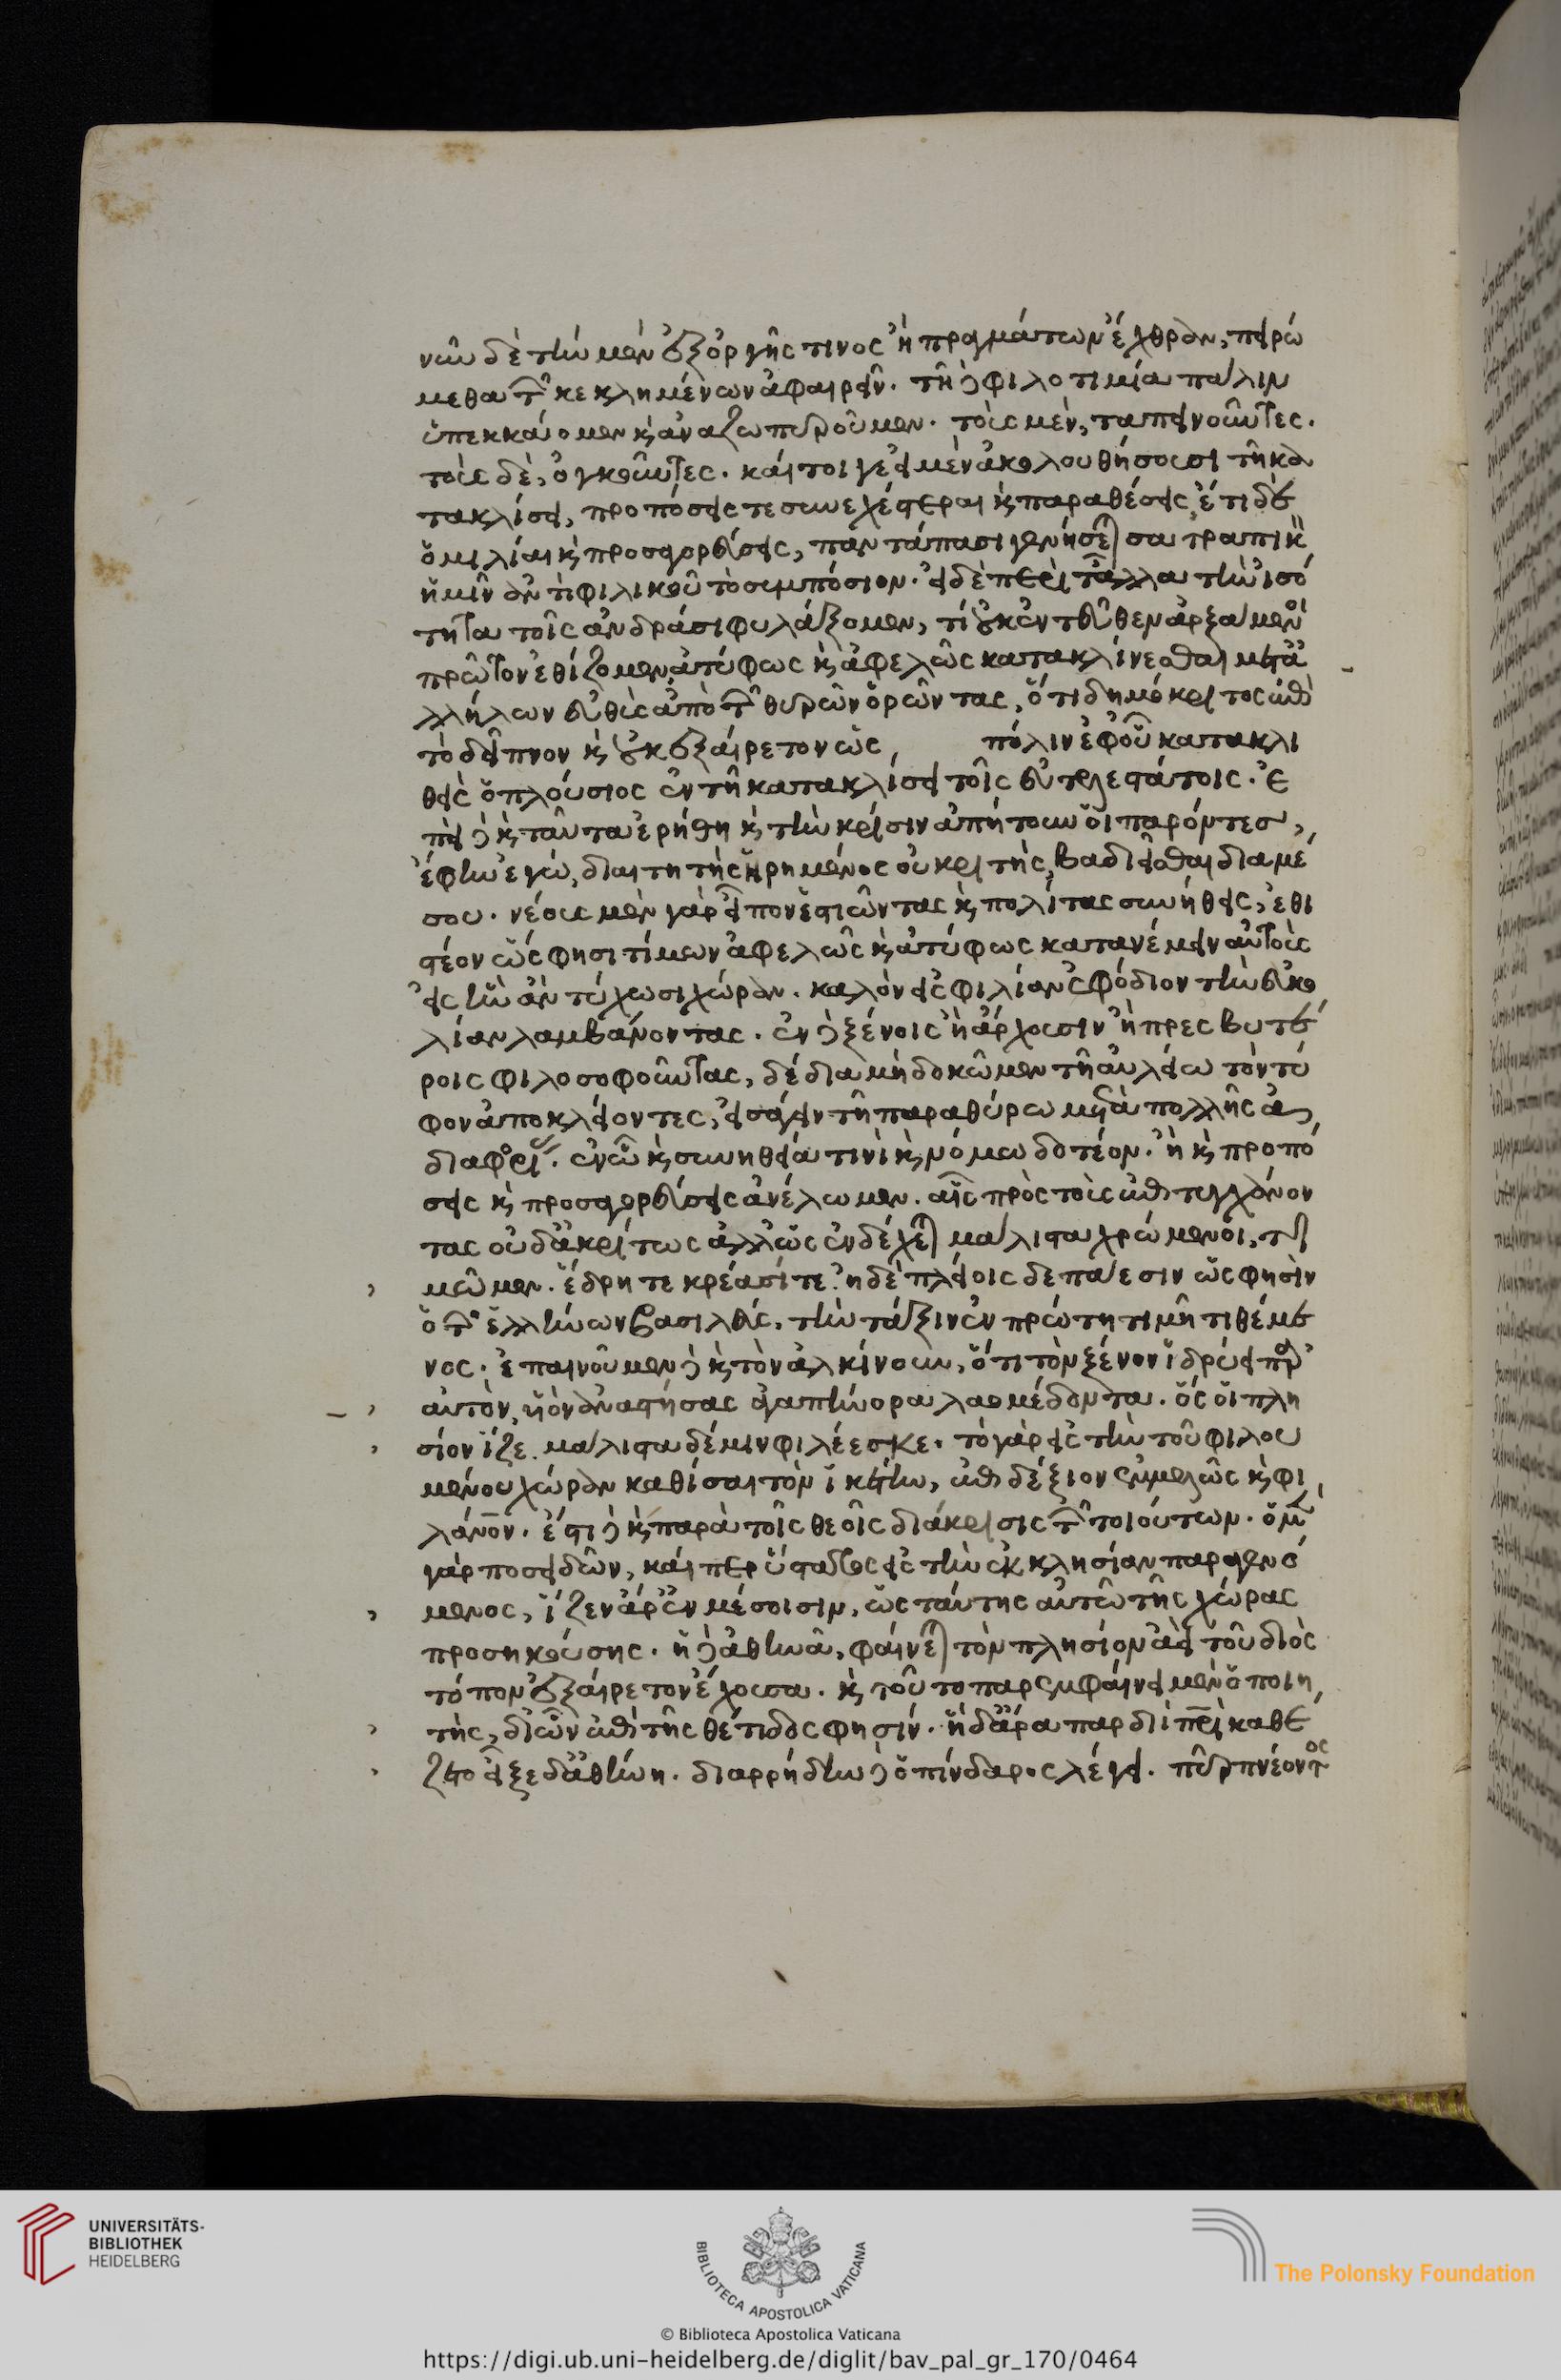 νῦν δὲ τὴν μὲν ἐξ ὀργῆς τινος ἢ πραγμάτων ἔχθραν, πειρώ
μεθα τῶν κεκλημένων ἀφαιρεῖν. τῇ δὲ φιλοτιμία πάλιν
ὑπεκκαίομεν καὶ ἀναζωπυροῦμεν. τοὺς μὲν, ταπεινοῦντες.
τοὺς δὲ, ὀγκοῦντες. καίτοι γε εἰ μὲν ἀκολουθήσουσι τῇ κα
τακλίσει, προπόσεις τε συνεχέστεραι καὶ παραθέσεις, ἔτι δὲ
ὁμιλίαι καὶ προσαγορεύσεις, παντάπασι γενήσεται σατραπικὸν
ἡμῖν ἀντὶ φιλικοῦ τὸ συμπόσιον. εἰ δὲ περὶ τἆλλα τὴν ἰσό
τητα τοῖς ἀνδράσι φυλάξομεν, τί οὐκ ἐντεῦθεν ἀρξάμενοι
πρῶτον ἐθίζομεν ἀτύφως καὶ ἀφελῶς κατακλίνεσθαι μετὰ ἀ
λλήλων εὐθὺς ἀπὸ τῶν θυρῶν ὁρῶντας, ὅτι δημόκριτος ἐπὶ
τὸ δεῖπνον καὶ οὐκ ἐξαίρετον ὡς, πόλιν ἐφ οὗ κατακλι
θεὶς ὁ πλούσιος ἐν τῇ κατακλίσει τοῖς εὐτελεστάτοις. ἐ
πεὶ δὲ καὶ ταῦτα ἐρήθη καὶ τὴν κρίσιν ἀπήτουν οἱ παρόντες,
ἔφην ἐγὼ, διαιτητὴς ᾑρημένος οὐ κριτὴς, βαδιεῖσθαι δια μέ
σου. νέους μὲν γὰρ εἶπον ἑστιῶντας καὶ πολίτας συνήθεις, ἐθι
στέον ὥς φησι τίμων ἀφελῶς καὶ ἀτύφως κατανέμειν αὐτοὺς
εἰς ἣν ἂν τύχωσι χώραν. καλὸν εἰς φιλίαν ἐφόδιον τὴν εὐκο
λίαν λαμβάνοντας. ἐν δὲ ξένοις ἢ ἄρχουσιν ἢ πρεσβυτέ
ροις φιλοσοφοῦντας, δέδια μὴ δοκῶμεν τῇ αὐλείω τὸν τύ
φον ἀποκλείοντες, εἰσάγειν τῇ παραθύρω μετὰ πολλῆς ἀ
διαφορίας. ἐν ᾧ καὶ συνηθεία τινὶ καὶ νόμω δοτέον. ἢ καὶ προπό
σεις καὶ προσαγορεύσεις ἀνέλωμεν. αἷς πρὸς τοὺς ἐπιτυγχάνον
τας οὐδ' ἀκρίτως ἀλλ' ὡς ἐνδέχεται μάλιστα χρώμενοι, τι
μῶμεν. ἕδρη τε κρέασίτε ἠδὲ πλείοις δεπάεσιν ὥς φησιν
ὁ τῶν ἑλλήνων βασιλεὺς, τὴν τάξιν ἐν πρώτη τιμῇ τιθέμε
νος. ἐπαινοῦμεν δὲ καὶ τὸν ἀλκίνουν, ὅτι τὸν ξένον ἱδρύει παρ'
αὐτὸν, υἱὸν ἀναστήσας ἀγαπήνορα λαομέδοντα. ὅς οἱ πλη
σίον ἷζε. μάλιστα δέ μιν φιλέεσκε. τὸ γὰρ εἰς τὴν τοῦ φιλου
μένου χώραν καθίσαι τὸν ἱκέτην, ἐπιδέξιον ἐμμελῶς καὶ φι
λάνθρωπον. ἔστι δὲ καὶ παρὰ τοῖς θεοῖς διάκρισις τῶν τοιούτων. ὁ μὲν
γὰρ ποσειδῶν, καίπερ ὕστατος εἰς τὴν ἐκκλησίαν παραγενό
μενος, ἷζεν ἄρ' ἐν μέσοισιν, ὡς ταύτης αὐτῶ τῆς χώρας
προσηκούσης. ἡ δὲ ἀθηνᾶ, φαίνεται τὸν πλησίον ἀεὶ τοῦ διὸς
τόπον ἐξαίρετον ἔχουσα. καὶ τοῦτο παρεμφαίνει μὲν ὁ ποιη
τὴς, δι ὧν ἐπὶ τῆς θέτιδος φησίν. ἡ δ' ἄρα παρ διὶ πατρὶ καθέ
ζετο εἶξε δ' ἀθήνη. διαρρήδην δὲ ὁ πίνδαρος λέγει. πῦρ πνέοντος
UNIVERSITÄTS-
BIBLIOTHEK
HEIDELBERG
BIBLIOTECA APOSTOLICA VATICANA
The Polonsky Foundation
© Biblioteca Apostolica Vaticana
https://digi.ub.uni-heidelberg.de/diglit/bav_pal_gr_170/0464